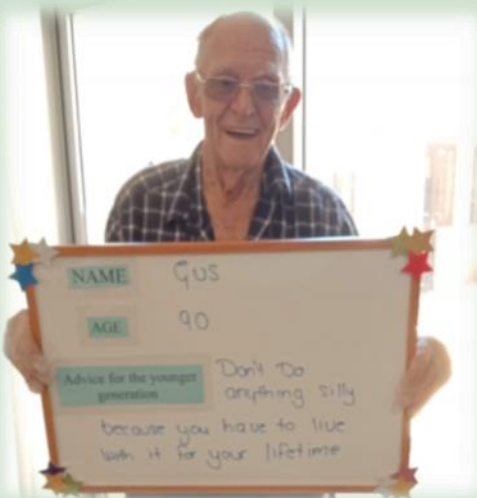 NAME GUS
AGE 90
Advice for the younger
generation
Don't Do
anything silly
because you have to live
with it for your lifetime